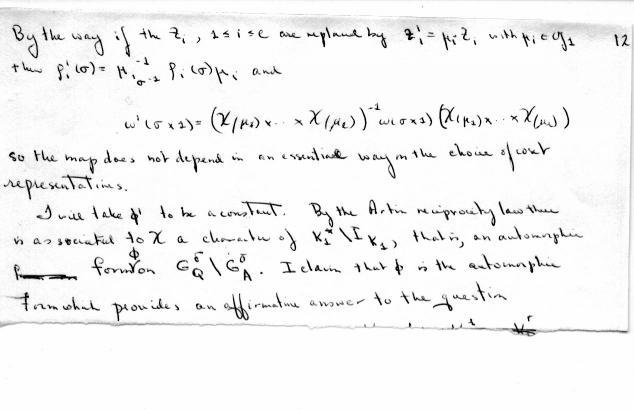 By the way if the z_i, 1 ≤ i ≤ e are replaced by z'_i = μ_i z_i with μ_i ∈ g_1 12
then ρ'_i(σ) = μ^{-1} ρ_i(σ) μ_i and
ω'(σ×1) = (χ(μ_1)× .. ×χ(μ_e))^{-1} ω(σ×1) (χ(μ_1)× .. ×χ(μ_e))
so the map does not depend in an essential way on the choice of coset
representatives.
I will take φ' to be a constant. By the Artin reciprocity law there
is associated to χ a character of K_1^*\I_{K_1}, that is, an automorphic
form φ on G^σ_Q\G^σ_A. I claim that φ is the automorphic
form which provides an affirmative answer to the question